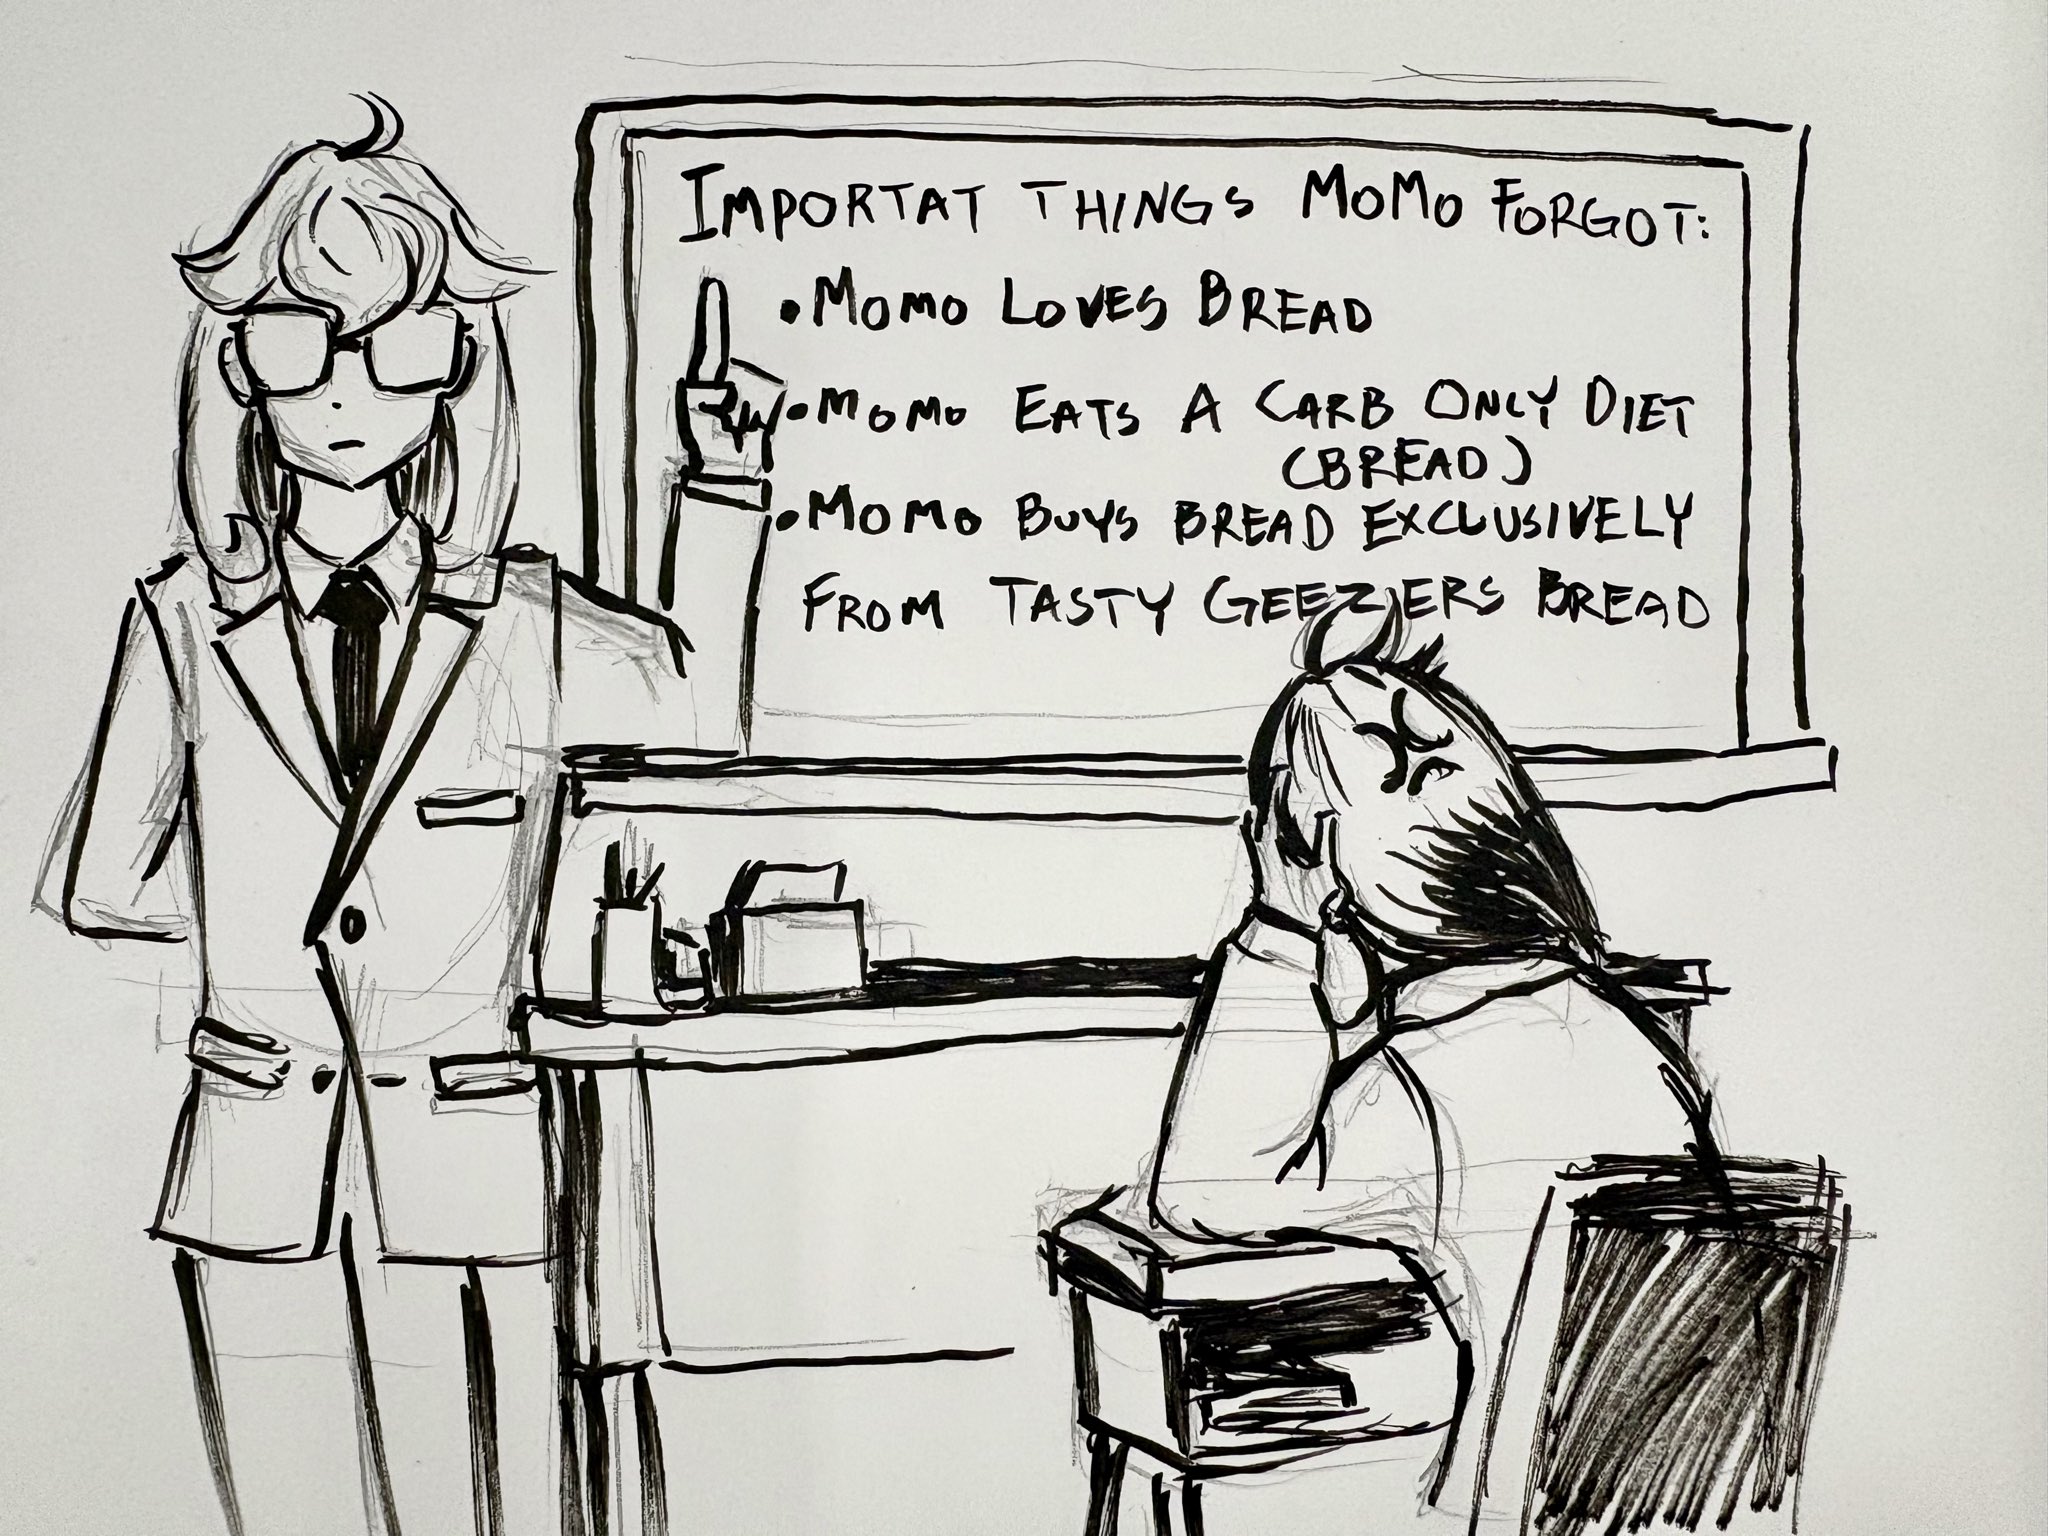 IMPORTAT THINGS MOMO FORGOT:
• MOMO LOVES BREAD
• MOMO EATS A CARB ONLY DIET
(BREAD)
• MOMO BUYS BREAD EXCLUSIVELY
FROM TASTY GEEZERS BREAD